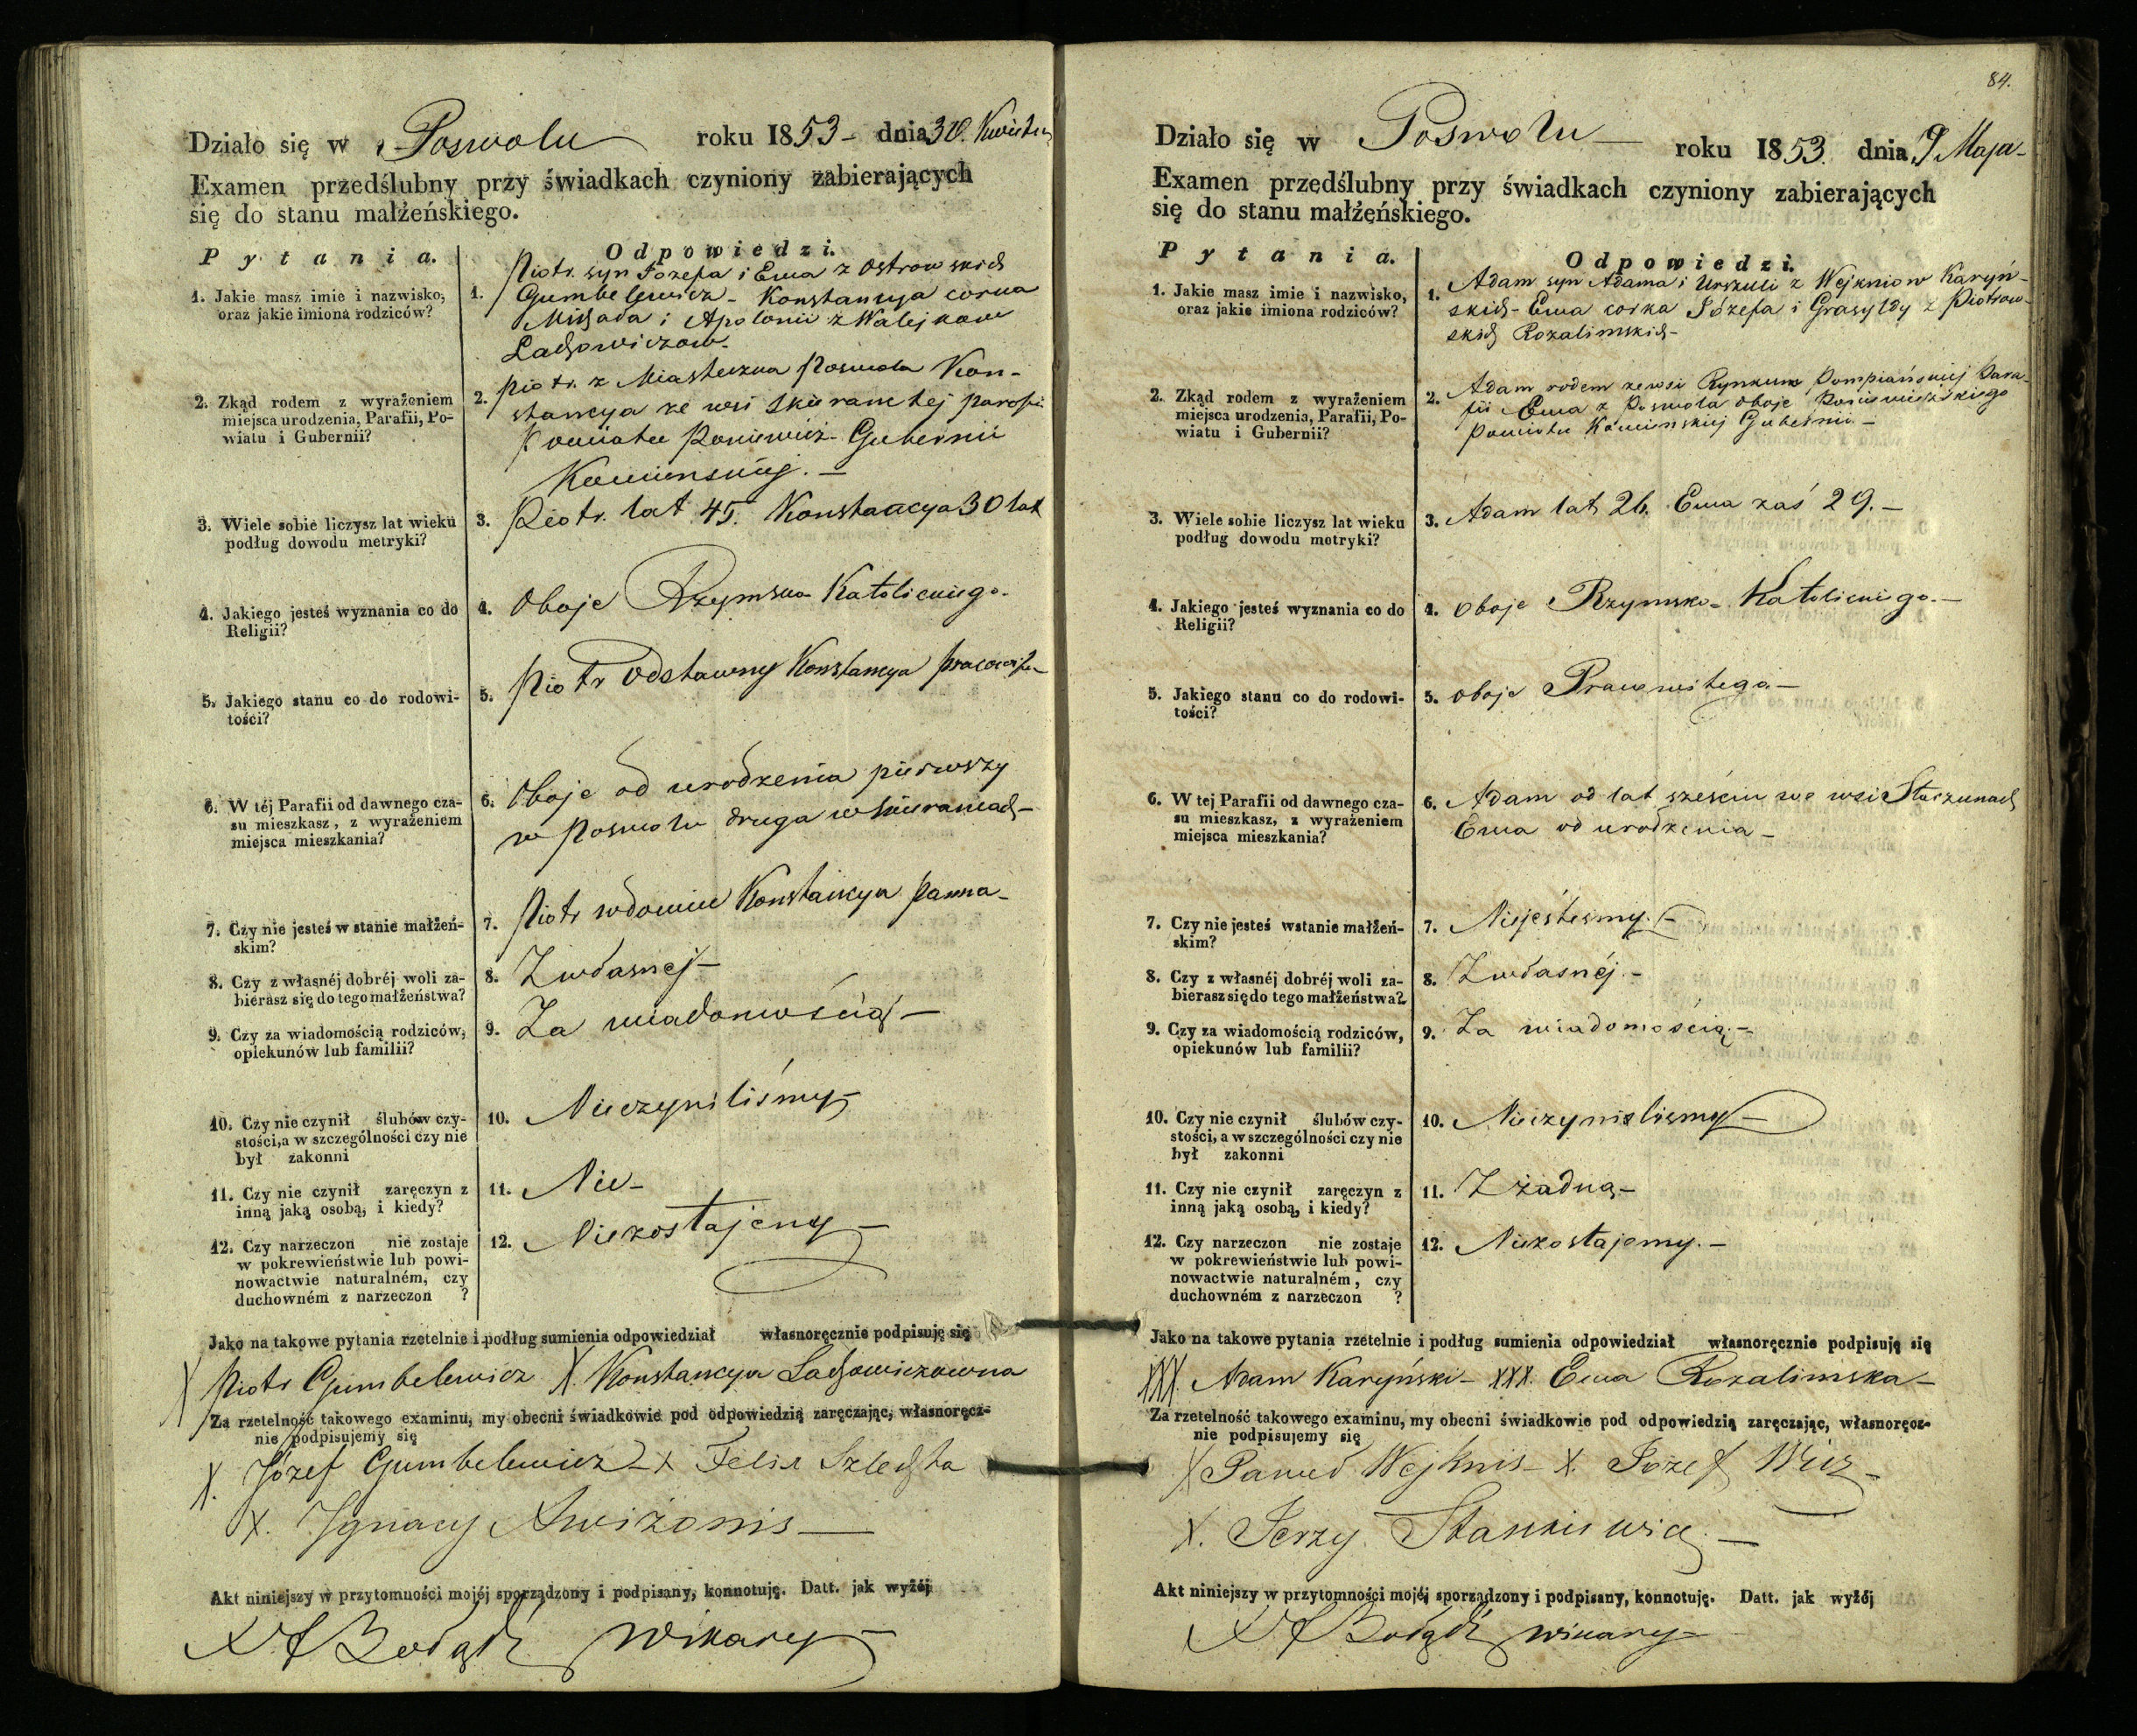 Działo się w Poswolu roku 1853 - dnia 30. Kwietn
Examen przedślubny przy świadkach czyniony zabierających
się do stanu małżeńskiego.
Pytania.
Odpowiedzi.
1. Jakie masz imie i nazwisko,
oraz jakie imiona rodziców?
1. Piotr syn Józefa i Ewa z Ostrowskich
Gumbelewicz - Konstancya corka
Michała i Apolonii z Walejkow
Lachowiczow -
2. Zkąd rodem z wyrażeniem
miejsca urodzenia, Parafii, Po-
wiatu i Gubernii?
2. Piotr. z Miasteczka Poswola Kon-
stancya ze wsi tej Parafii
Powiatu Poniewież - Gubernii
Kowienskiej. -
3. Wiele sobie liczysz lat wieku
podług dowodu metryki?
3. Piotr. lat 45. Konstancya 30 lat
4. Jakiego jesteś wyznania co do
Religii?
4. Oboje Rzymsko Katolickiego -
5. Jakiego stanu co do rodowi-
tości?
5. Piotr Odstawny Konstancya
6. W téj Parafii od dawnego cza-
su mieszkasz, z wyrażeniem
miejsca mieszkania?
6. Oboje od urodzenia pierwszy
w Poswolu druga w
7. Czy nie jesteś w stanie małżeń-
skim?
7. Piotr wdowiec Konstancya Panna -
8. Czy z własnéj dobréj woli za-
bierasz się do tego małżeństwa?
8. Zwłasnej -
9. Czy za wiadomością rodziców,
opiekunów lub familii?
9. Za wiadomością -
10. Czy nie czynił ślubów czy-
stości, a w szczególności czy nie
był zakonni
10. Nieczyniliśmy -
11. Czy nie czynił zaręczyn z
inną jaką osobą, i kiedy?
11. Nie -
12. Czy narzeczon nie zostaje
w pokrewieństwie lub powi-
nowactwie naturalném, czy
duchowném z narzeczon ?
12. Niezostajemy -
Jako na takowe pytania rzetelnie i podług sumienia odpowiedział własnoręcznie podpisuję się
X Piotr Gumbelewicz X. Konstancya Lachowiczowna
Za rzetelność takowego examinu, my obecni świadkowie pod odpowiedzią zaręczając, własnoręcz-
nie podpisujemy się
X. Józef Gumbelewicz - x Felix Szlachta
X. Ignacy Awiżonis -
Akt niniejszy w przytomności mojéj sporządzony i podpisany, konnotuję. Datt. jak wyżéj
Wikary -
84.
Działo się w Poswolu - roku 1853. dnia 9 Maja -
Examen przedślubny przy świadkach czyniony zabierających
się do stanu małżeńskiego.
Pytania.
Odpowiedzi.
1. Jakie masz imie i nazwisko,
oraz jakie imiona rodziców?
1. Adam syn Adama i Urszuli z Wejkniow Karyń-
skich - Ewa corka Józefa i Grasyldy z Piotrow-
skich Rozalimskich -
2. Zkąd rodem z wyrażeniem
miejsca urodzenia, Parafii, Po-
wiatu i Gubernii?
2. Adam rodem ze wsi Rynkun Pompiańskiej Para-
fii Ewa z Poswola oboje Poniewieżskiego
Powiatu Kowienskiej Gubernii -
3. Wiele sobie liczysz lat wieku
podług dowodu metryki?
3. Adam lat 26. Ewa zaś 29. -
4. Jakiego jesteś wyznania co do
Religii?
4. Oboje Rzymsko - Katolickiego. -
5. Jakiego stanu co do rodowi-
tości?
5. Oboje Prawowitego -
6. W tej Parafii od dawnego cza-
su mieszkasz, z wyrażeniem
miejsca mieszkania?
6. Adam od lat sześciu we wsi
Ewa od urodzenia -
7. Czy nie jesteś wstanie małżeń-
skim?
7. Niejestesmy. -
8. Czy z własnéj dobréj woli za-
bierasz się do tego małżeństwa?
8. Zwłasnéj. -
9. Czy za wiadomością rodziców,
opiekunów lub familii?
9. Za wiadomością. -
10. Czy nie czynił ślubów czy-
stości, a w szczególności czy nie
był zakonni
10. Nieczynilismy -
11. Czy nie czynił zaręczyn z
inną jaką osobą, i kiedy?
11. Z żadną -
12. Czy narzeczon nie zostaje
w pokrewieństwie lub powi-
nowactwie naturalném, czy
duchowném z narzeczon ?
12. Niezostajemy. -
Jako na takowe pytania rzetelnie i podług sumienia odpowiedział własnoręcznie podpisuję się
XXX. Adam Karyński - XXX. Ewa Rozalimska -
Za rzetelność takowego examinu, my obecni świadkowie pod odpowiedzią zaręczając, własnoręcz-
nie podpisujemy się
X Paweł Wejknis - X. Józef
X. Jerzy Stankiewicz. -
Akt niniejszy w przytomności mojéj sporządzony i podpisany, konnotuję. Datt. jak wyżéj
wikary -